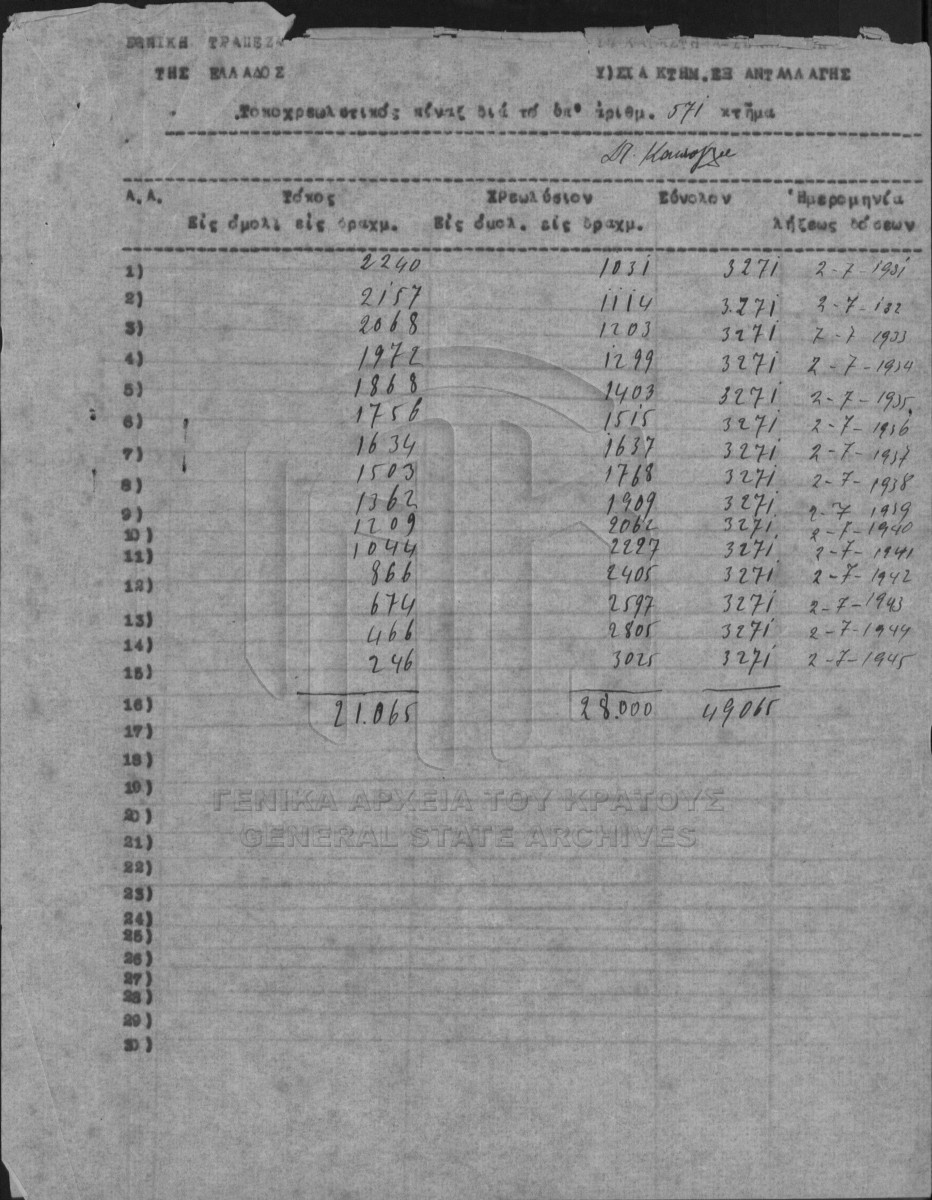 ΕΘΝΙΚΗ ΤΡΑΠΕΖΑ
ΤΗΣ ΕΛΛΑΔΟΣ Υ)ΣΙΑ ΚΤΗΜ.ΕΞ ΑΝΤΑΛΛΑΓΗΣ
Τοκοχρεωλυτικός πίναξ διά τό ὑπ' ἀριθμ. 571 κτῆμα
Α.Α. Τόκος Χρεωλύσιον Σύνολον Ἡμερομηνία
Εἰς ὁμολ. εἰς δραχμ. Εἰς ὁμολ. εἰς δραχμ. λήξεως δόσεων
1) 2240 1031 3271 2-7-1931
2) 2157 1114 3.271 2-7-132
3) 2068 1203 3271 7-7 1933
4) 1972 1299 3271 2-7-1934
5) 1868 1403 3271 2-7-1935
6) 1756 1515 3271 2-7-1936
7) 1634 1637 3271 2-7-1937
8) 1503 1768 3271 2-7-1938
9) 1362 1909 3271 2-7 1939
10) 1209 2062 3271 2-7-1940
11) 1044 2227 3271 2-7-1941
12) 866 2405 3271 2-7-1942
13) 674 2597 3271 2-7-1943
14) 466 2805 3271 2-7-1944
15) 246 3025 3271 2-7-1945
16) 21.065 28.000 49065
17)
18)
19)
20)
21)
22)
23)
24)
25)
26)
27)
28)
29)
30)
ΓΕΝΙΚΑ ΑΡΧΕΙΑ ΤΟΥ ΚΡΑΤΟΥΣ
GENERAL STATE ARCHIVES